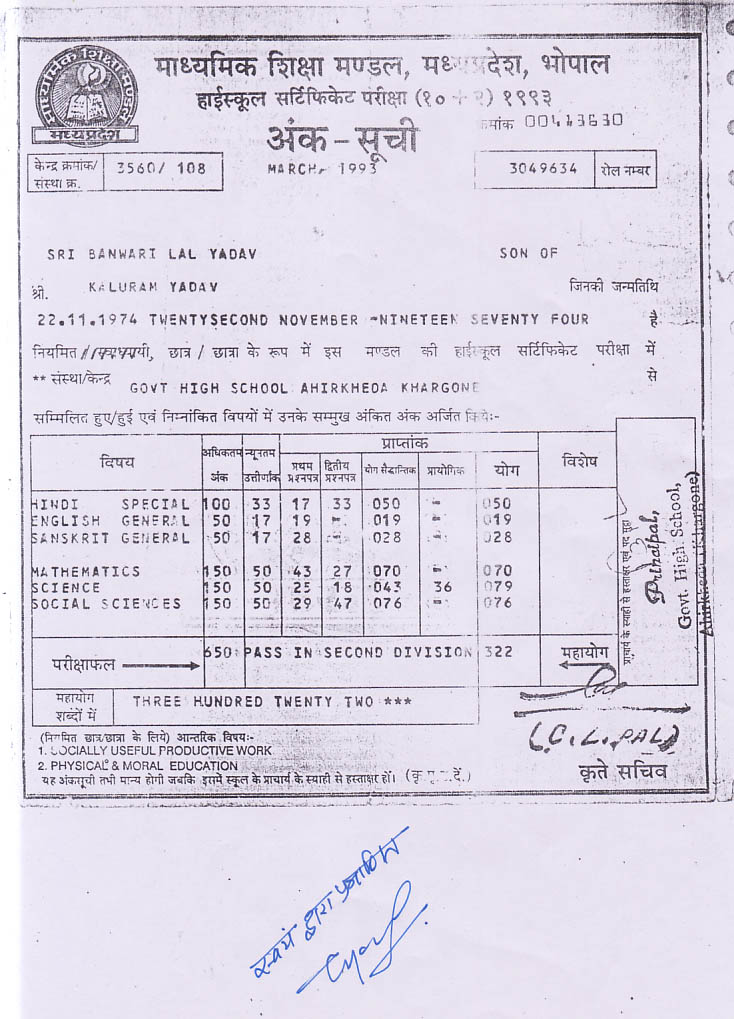 माध्यमिक शिक्षा मण्डल, मध्यप्रदेश, भोपाल
हाईस्कूल सर्टिफिकेट परीक्षा (१० + २) १९९३
क्रमांक 00413630
मध्यप्रदेश
अंक - सूची
केन्द्र क्रमांक/ संस्था क्र. 3560/ 108 MARCH, 1993 3049634 रोल नम्बर
SRI BANWARI LAL YADAV SON OF
श्री. KALURAM YADAV जिनकी जन्मतिथि
22.11.1974 TWENTYSECOND NOVEMBER -NINETEEN SEVENTY FOUR है
नियमित / छात्र / छात्रा के रूप में इस मण्डल की हाईस्कूल सर्टिफिकेट परीक्षा में
** संस्था/केन्द्र GOVT HIGH SCHOOL AHIRKHEDA KHARGONE से
सम्मिलित हुए/हुई एवं निम्नांकित विषयों में उनके सम्मुख अंकित अंक अर्जित किये:-
विषय अधिकतम अंक न्यूनतम उत्तीर्णांक प्राप्तांक विशेष
प्रथम प्रश्नपत्र द्वितीय प्रश्नपत्र योग सैद्धान्तिक प्रायोगिक योग
HINDI SPECIAL 100 33 17 33 050 - 050
ENGLISH GENERAL 50 17 19 - 019 - 019
SANSKRIT GENERAL 50 17 28 - 028 - 028
MATHEMATICS 150 50 43 27 070 - 070
SCIENCE 150 50 25 18 043 36 079
SOCIAL SCIENCES 150 50 29 47 076 - 076
परीक्षाफल 650 PASS IN SECOND DIVISION 322 महायोग
महायोग शब्दों में THREE HUNDRED TWENTY TWO ***
प्राचार्य के स्याही से हस्ताक्षर एवं पद मुद्रा
Principal,
Govt. High School,
Ahirkheda (Khargone)
(C.L.PAL)
कृते सचिव
(नियमित छात्र/छात्रा के लिये) आन्तरिक विषय:-
1. SOCIALLY USEFUL PRODUCTIVE WORK
2. PHYSICAL & MORAL EDUCATION
यह अंकसूची तभी मान्य होगी जबकि इसमें स्कूल के प्राचार्य के स्याही से हस्ताक्षर हों।
स्वयं द्वारा प्रमाणित